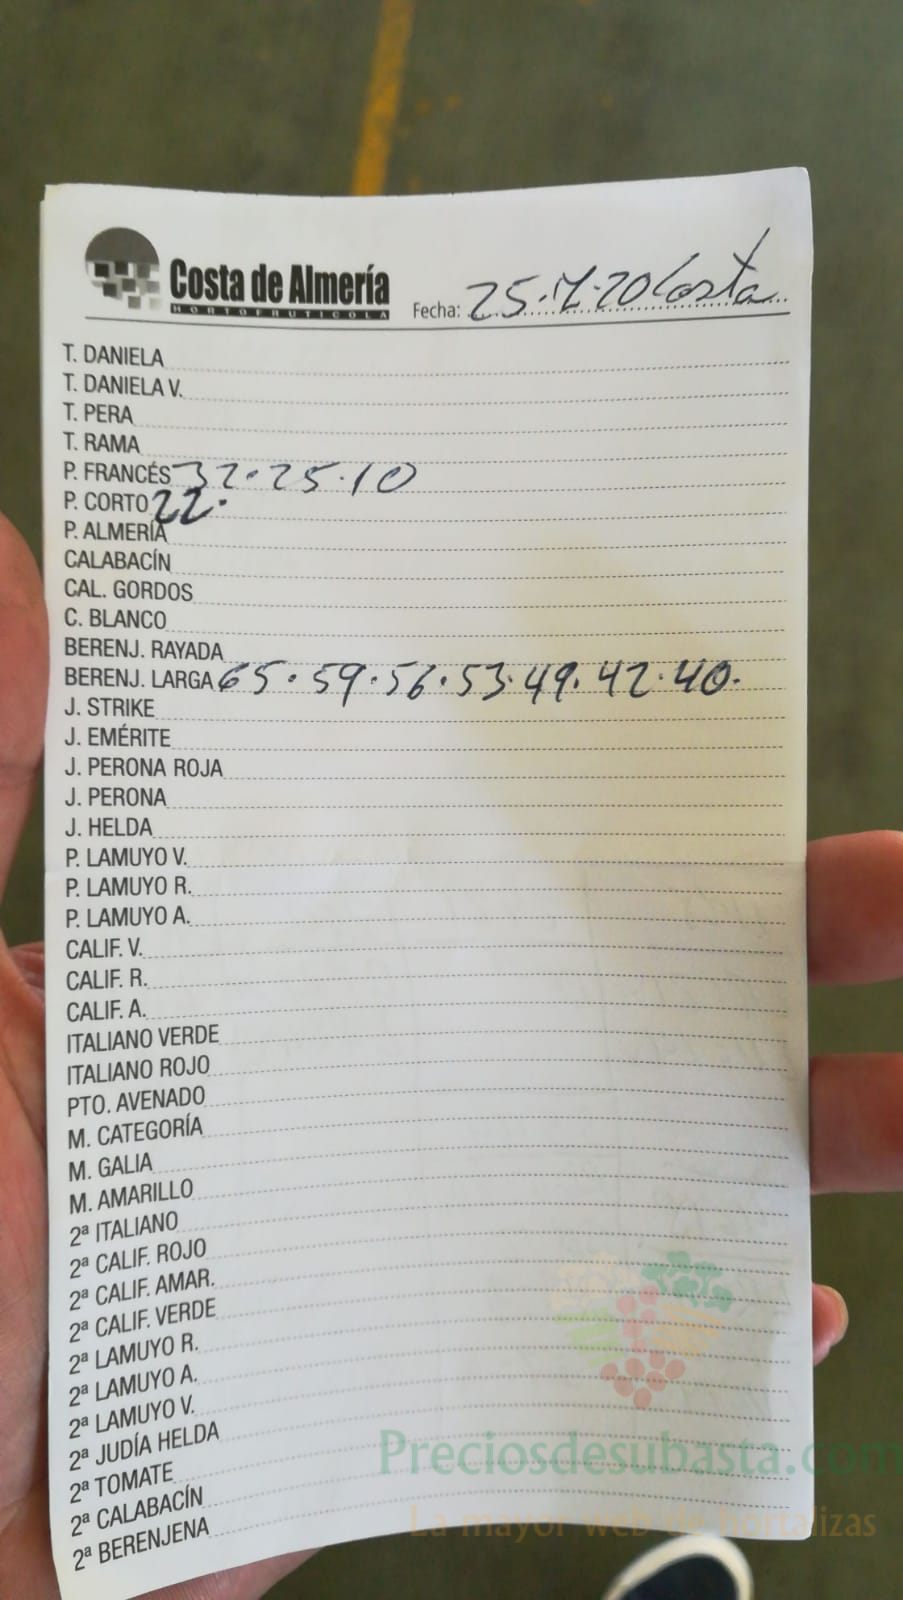 Costa de Almería
HORTOFRUTICOLA
Fecha: 25.7.20 Costa
T. DANIELA
T. DANIELA V.
T. PERA
T. RAMA
P. FRANCÉS 32.25.10
P. CORTO 22.
P. ALMERÍA
CALABACÍN
CAL. GORDOS
C. BLANCO
BERENJ. RAYADA
BERENJ. LARGA 65.59.56.53.49.42.40.
J. STRIKE
J. EMÉRITE
J. PERONA ROJA
J. PERONA
J. HELDA
P. LAMUYO V.
P. LAMUYO R.
P. LAMUYO A.
CALIF. V.
CALIF. R.
CALIF. A.
ITALIANO VERDE
ITALIANO ROJO
PTO. AVENADO
M. CATEGORÍA
M. GALIA
M. AMARILLO
2ª ITALIANO
2ª CALIF. ROJO
2ª CALIF. AMAR.
2ª CALIF. VERDE
2ª LAMUYO R.
2ª LAMUYO A.
2ª LAMUYO V.
2ª JUDÍA HELDA
2ª TOMATE
2ª CALABACÍN
2ª BERENJENA
Preciosdesubasta.com
La mayor web de hortalizas